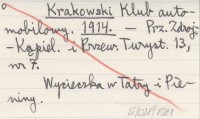 Krakowski Klub auto-
mobilowy. 1914. — Prz. Zdroj.-
Kąpiel. i Przew. Turyst. 13,
nr 7.
Wycieczka w Tatry i Pie-
niny.